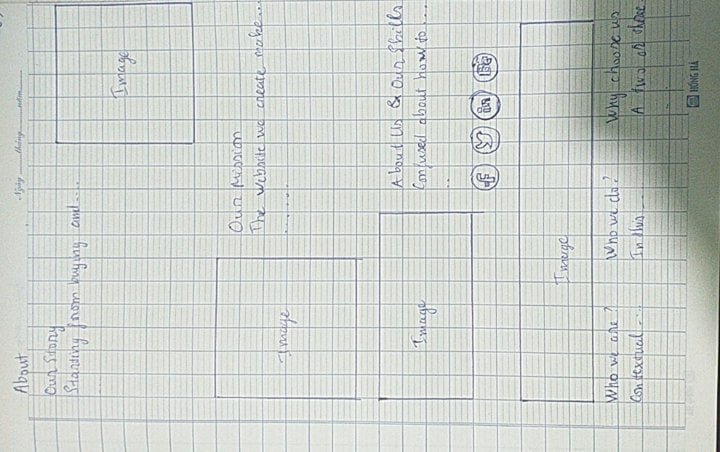 About
Ngày tháng năm
Our Story
Starting from buying and....
Image
Our Mission
The website we create make...
.......
Image
Image
About Us & Our Skills
Confused about how to ...
..
f in G+
Image
Who we are?
Contextual ...
Who we do?
In this ...
Why choose us
A two or those
HỒNG HÀ